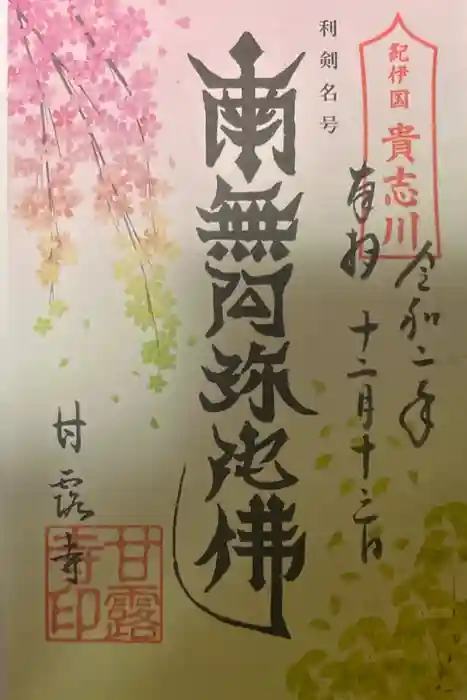 紀伊国
貴志川
令和二年
奉拝
十二月十三日
利剣名号
南無阿弥陀佛
甘露寺
甘露
寺印